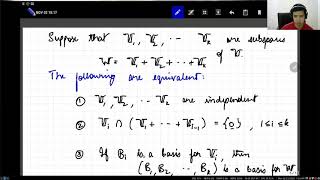 NOV 02 15:17
Suppose that 𝒱₁, 𝒱₂, ⋯ 𝒱ₖ are subspaces
of 𝒱.
𝒲 = 𝒱₁ + 𝒱₂ + ⋯ + 𝒱ₖ
The following are equivalent:
① 𝒱₁, 𝒱₂, ⋯ 𝒱ₖ are independent
② 𝒱ᵢ ∩ (𝒱₁ + ⋯ + 𝒱ᵢ₋₁) = {0}, 1≤i≤k
③ If Bᵢ is a basis for 𝒱ᵢ, then
(B₁, B₂, ⋯, Bₖ) is a basis for 𝒲.